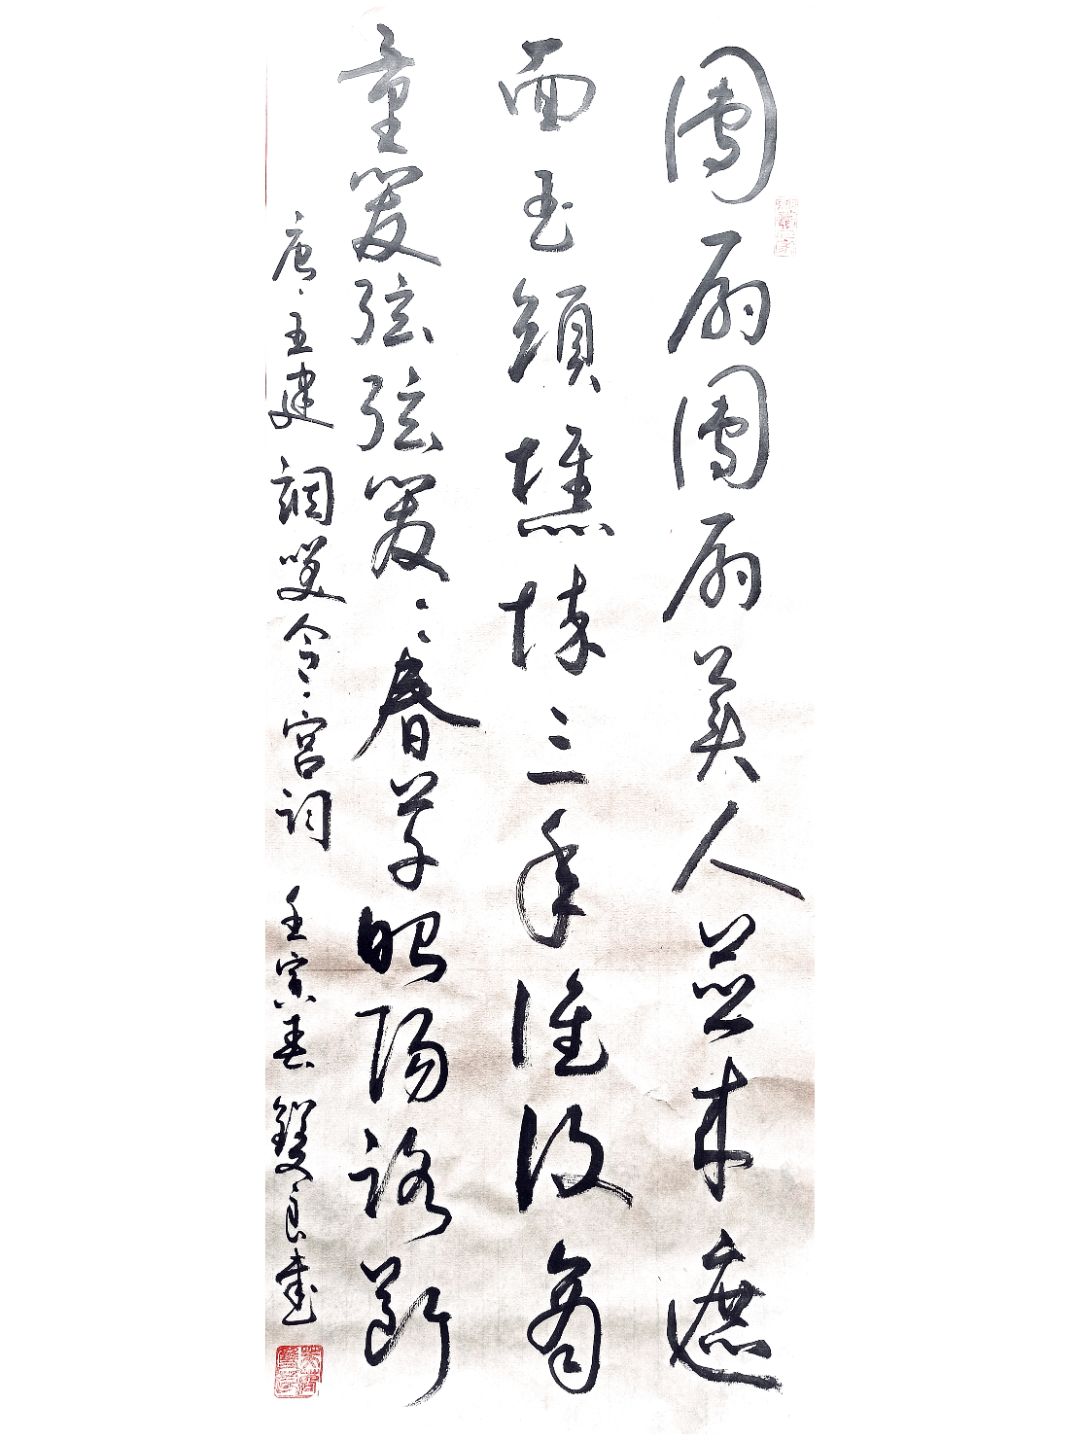 團扇團扇美人並来遮
面玉顏憔悴三年誰復商
量管弦弦管〻〻春草昭陽路斷
唐·王建 調笑令·宮詞 壬寅春 良書